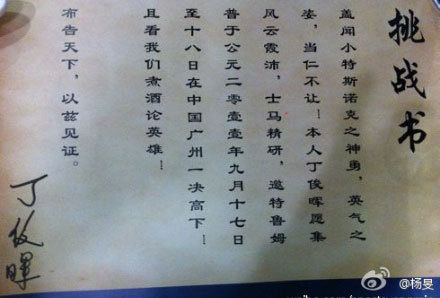 挑战书
盖闻小特斯诺克之神勇，英气之
姿，当仁不让！本人丁俊晖愿集
风云霞沛，士马精研，邀特鲁姆
普于公元二零壹壹年九月十七日
至十八日在中国广州一决高下！
且看我们煮酒论英雄！
布告天下，以兹见证。
丁俊暉
@杨旻